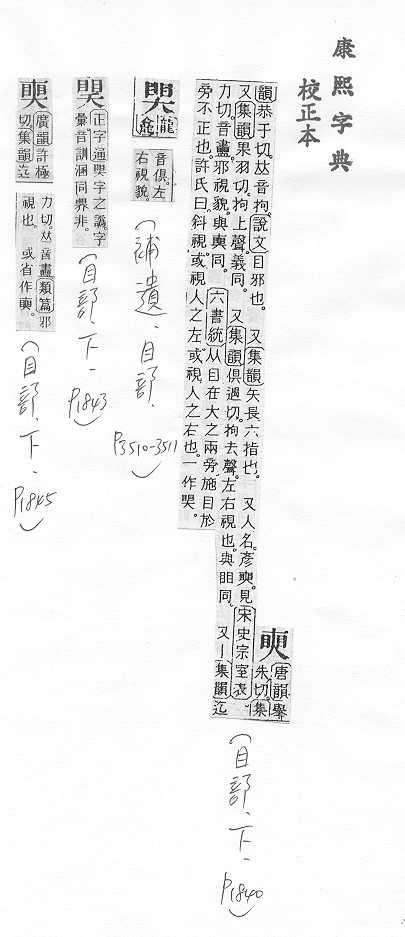 康熙字典
校正本
唐韻舉
朱切。集
韻恭于切。𠀤音拘。說文目邪也。 又集韻矢長六指也。 又人名。彥 見宋史宗室表
又集韻果羽切。拘上聲。義同。 又集韻俱遇切。拘去聲。左右視也。與䀠同。 又丨集韻迄
力切。音衋。邪視貌。與 同。 六書統从目在大之兩旁。施目於
旁不正也。許氏曰。斜視。或視人之左。或視人之右也。一作 。
(目部、下、P1840)
龍
龕
音俱。左
右視貌。
(補遺、目部、P3510-3511)
正字通 字之譌。字
彙音訓溷同 。非。
(目部、下、P1843)
廣韻許極
切集韻迄
力切。𠀤音衋。類篇邪
視也。 或省作 。
(目部、下、P1845)